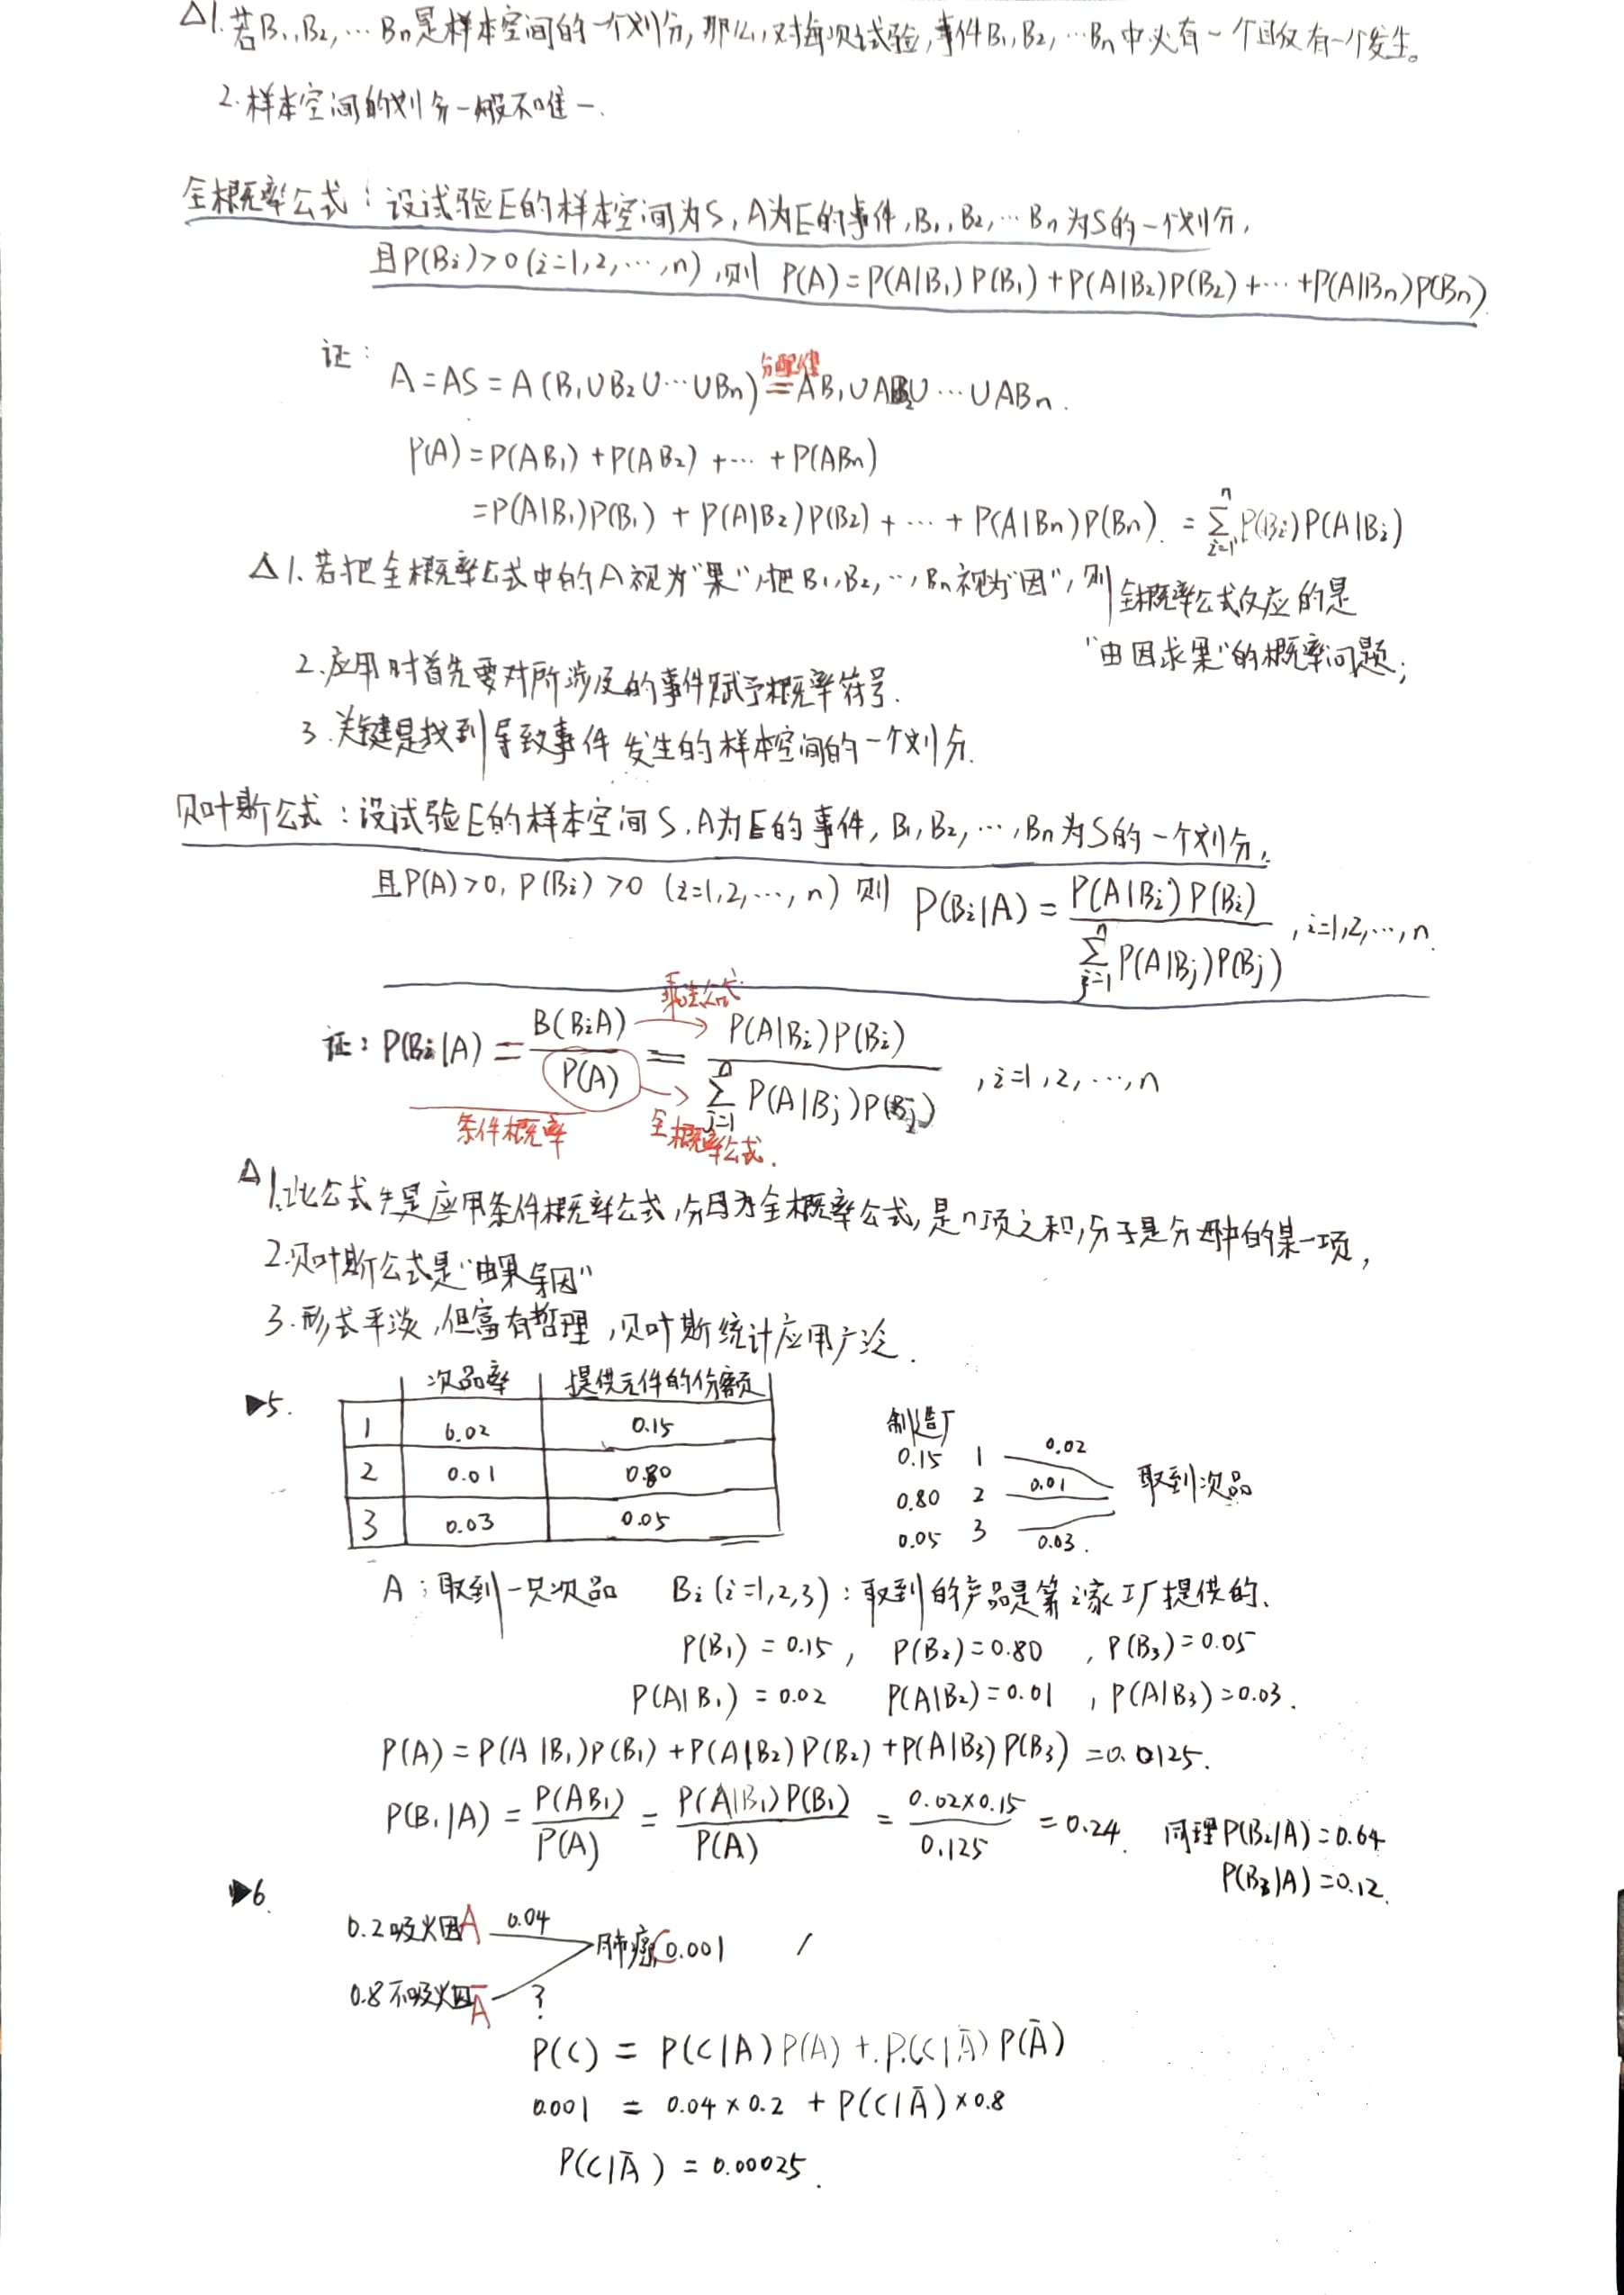 △1.若B₁,B₂,…Bn是样本空间的一个划分,那么,对每次试验,事件B₁,B₂,…Bn中必有一个且仅有一个发生。
2.样本空间的划分一般不唯一.
全概率公式:设试验E的样本空间为S,A为E的事件,B₁,B₂,…Bn为S的一个划分,
且P(Bi)>0(i=1,2,…,n),则 P(A)=P(A|B₁)P(B₁)+P(A|B₂)P(B₂)+…+P(A|Bn)P(Bn).
证:
分配律
A=AS=A(B₁∪B₂∪…∪Bn)=AB₁∪AB₂∪…∪ABn.
P(A)=P(AB₁)+P(AB₂)+…+P(ABn)
=P(A|B₁)P(B₁)+P(A|B₂)P(B₂)+…+P(A|Bn)P(Bn).=∑ⁿᵢ₌₁P(Bi)P(A|Bi)
△1.若把全概率公式中的A视为"果",把B₁,B₂,…,Bn视为"因",则全概率公式反应的是
"由因求果"的概率问题;
2.应用时首先要对所涉及的事件赋予概率符号.
3.关键是找到导致事件发生的样本空间的一个划分.
贝叶斯公式:设试验E的样本空间S,A为E的事件,B₁,B₂,…,Bn为S的一个划分,
且P(A)>0,P(Bi)>0 (i=1,2,…,n) 则 P(Bi|A)=P(A|Bi)P(Bi)/∑ⁿⱼ₌₁P(A|Bj)P(Bj),i=1,2,…,n.
乘法公式
证:P(Bi|A)=B(BiA)/P(A)=P(A|Bi)P(Bi)/∑ⁿⱼ₌₁P(A|Bj)P(Bj),i=1,2,…,n
条件概率 全概率公式.
△1.此公式先是应用条件概率公式,分母为全概率公式,是n项之和,分子是分母中的某一项,
2.贝叶斯公式是"由果导因"
3.形式平淡,但富有哲理,贝叶斯统计应用广泛.
▶5.
次品率 提供元件的份额
1 0.02 0.15
2 0.01 0.80
3 0.03 0.05
制造厂
0.15 1 0.02
0.80 2 0.01 取到次品
0.05 3 0.03.
A:取到一只次品 Bi(i=1,2,3):取到的产品是第i家工厂提供的.
P(B₁)=0.15, P(B₂)=0.80 ,P(B₃)=0.05
P(A|B₁)=0.02 P(A|B₂)=0.01 ,P(A|B₃)=0.03.
P(A)=P(A|B₁)P(B₁)+P(A|B₂)P(B₂)+P(A|B₃)P(B₃)=0.0125.
P(B₁|A)=P(AB₁)/P(A)=P(A|B₁)P(B₁)/P(A)=0.02×0.15/0.125=0.24. 同理P(B₂|A)=0.64
P(B₃|A)=0.12.
▶6.
0.2吸烟A 0.04 肺癌C 0.001
0.8不吸烟Ā ?
P(C)=P(C|A)P(A)+P(C|Ā)P(Ā)
0.001 = 0.04×0.2+P(C|Ā)×0.8
P(C|Ā)=0.00025.